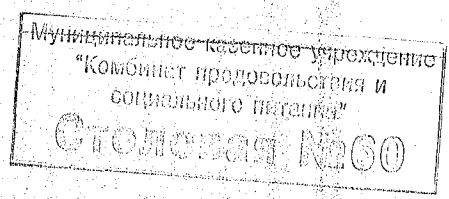 Муниципальное казенное учреждение
"Комбинат продовольствия и
социального питания"
Столовая №60